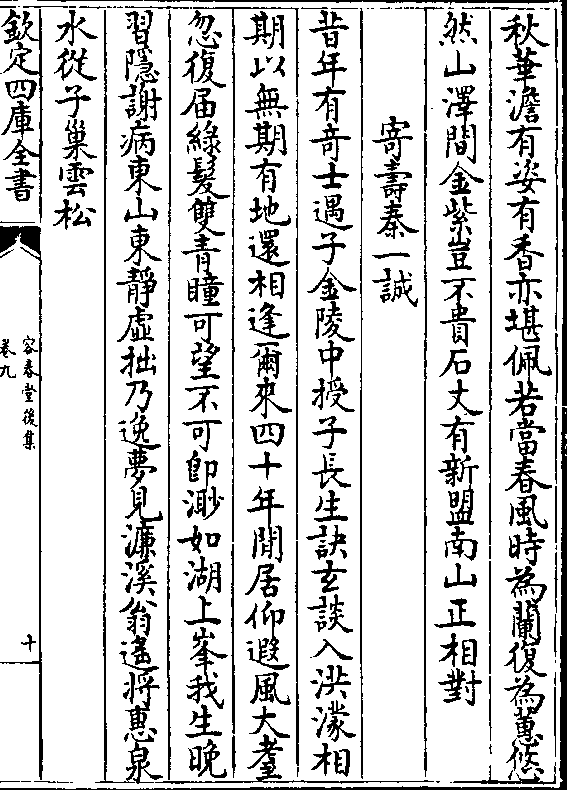 秋華澹有姿有香亦堪佩若當春風時為蘭復為蕙悠
然山澤間金紫豈不貴石丈有新盟南山正相對
寄壽秦一誠
昔年有奇士遇子金陵中授子長生訣玄談入洪濛相
期以無期有地還相逢爾來四十年閒居仰遐風大耋
忽復屆綠髮雙青瞳可望不可即渺如湖上峯我生晚
習隱謝病東山東靜虛拙乃逸夢見濂溪翁遙將惠泉
水從子巢雲松
欽定四庫全書
容春堂後集
卷九
十